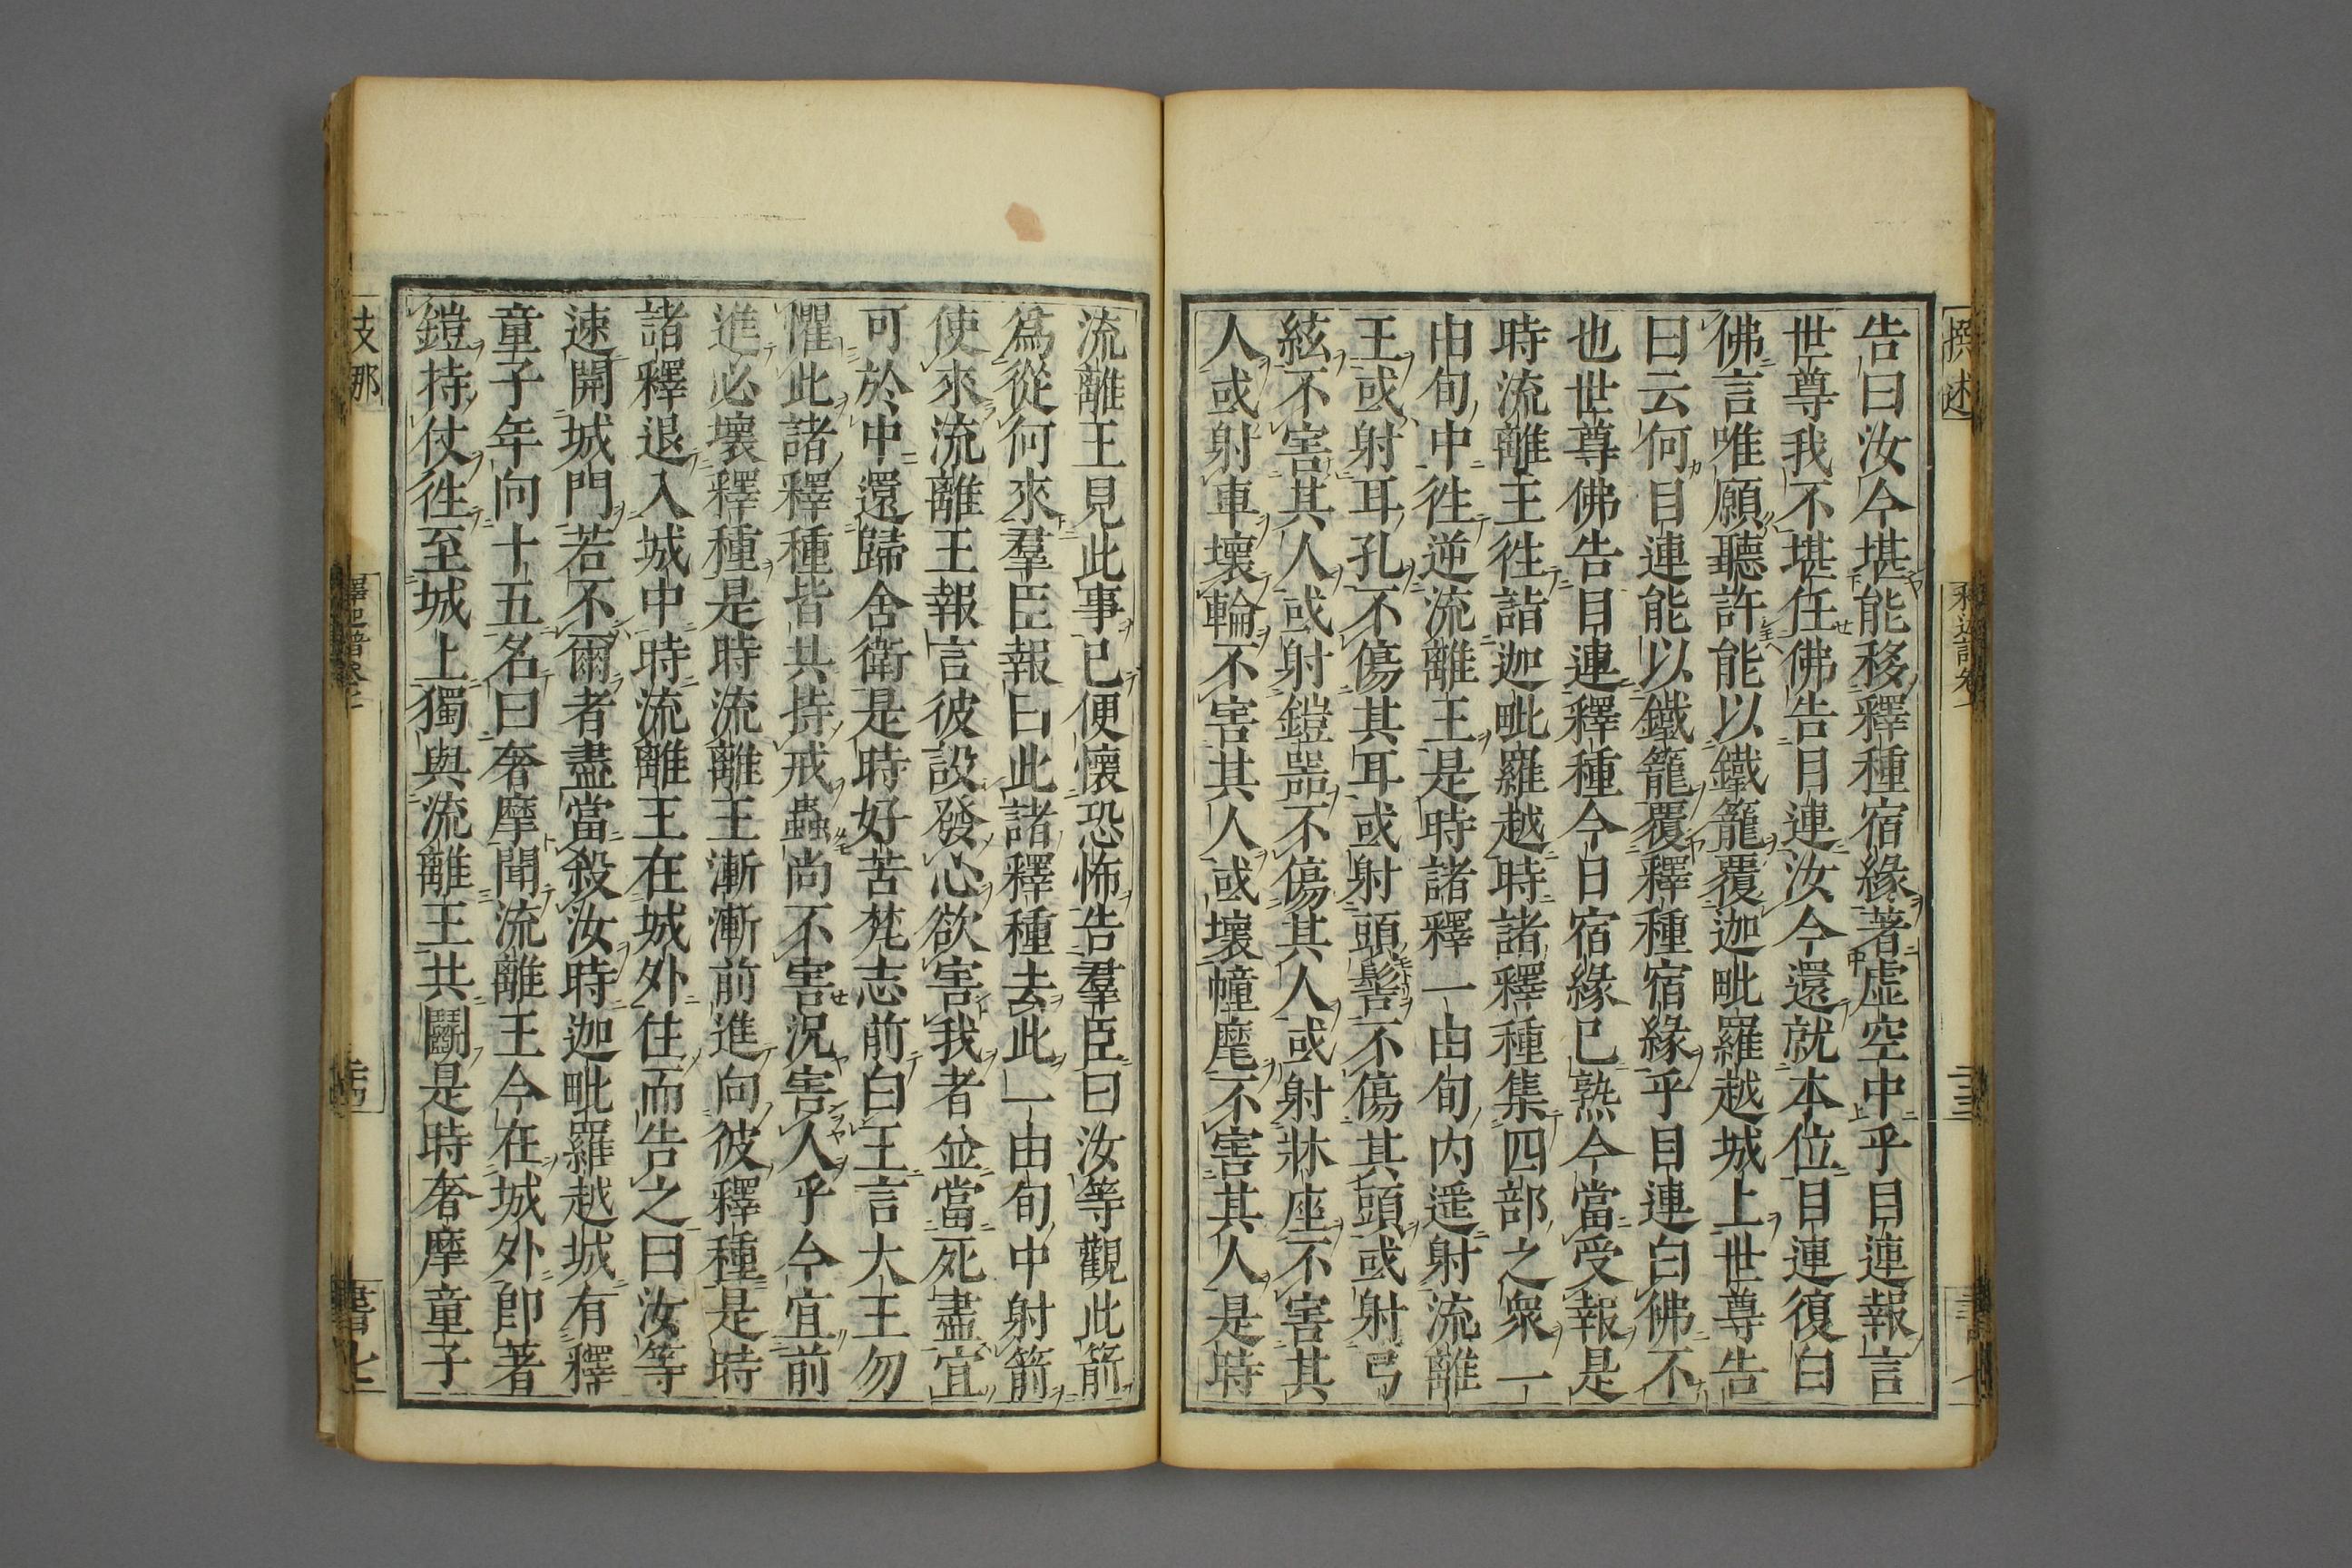 撰述
告曰汝今堪能移釋種宿緣著虛空中乎目連報言
世尊我不堪任佛告目連汝今還就本位目連復白
佛言唯願聽許能以鐵籠覆迦毗羅越城上世尊告
曰云何目連能以鐵籠覆釋種宿緣乎目連白佛不
也世尊佛告目連釋種今日宿緣已熟今當受報是
時流離王徃詣迦毗羅越時諸釋種集四部之衆一
由旬中徃逆流離王是時諸釋一由旬内遥射流離
王或射耳孔不傷其耳或射頭髻不傷其頭或射弓
絃不害其人或射鎧器不傷其人或射牀座不害其
人或射車壞輪不害其人或壞幢麾不害其人是時
流離王見此事已便懷恐怖告羣臣曰汝等觀此箭
爲從何來羣臣報曰此諸釋種去此一由旬中射箭
使來流離王報言彼設發心欲害我者並當死盡宜
可於中還歸舍衛是時好苦梵志前白王言大王勿
懼此諸釋種皆共持戒蟲尚不害況害人乎今宜前
進必壞釋種是時流離王漸漸前進向彼釋種是時
諸釋退入城中時流離王在城外住而告之曰汝等
速開城門若不爾者盡當殺汝時迦毗羅越城有釋
童子年向十五名曰奢摩聞流離王今在城外卽著
鎧持仗徃至城上獨與流離王共鬪是時奢摩童子
支那